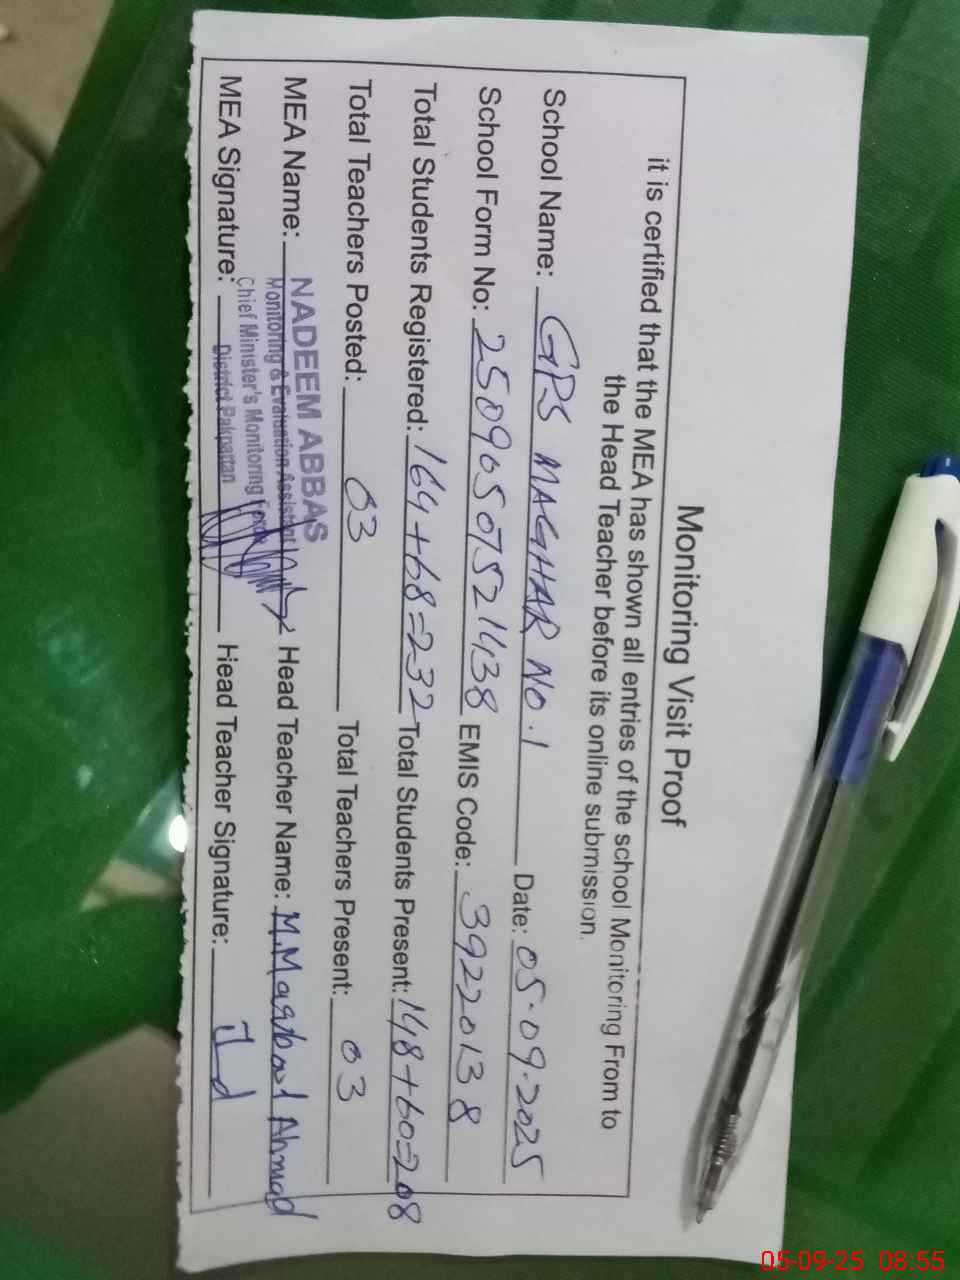 Monitoring Visit Proof
it is certified that the MEA has shown all entries of the school Monitoring From to
the Head Teacher before its online submission.
School Name: GPS MAGHAR NO.1 Date: 05.09.2025
School Form No: 2509050752 1438 EMIS Code: 39220138
Total Students Registered: 164+68=232 Total Students Present: 148+60=208
Total Teachers Posted: 03 Total Teachers Present: 03
MEA Name: NADEEM ABBAS Head Teacher Name: M. Maqbool Ahmad
Monitoring & Evaluation Assistant
Chief Minister's Monitoring Force
District Pakpattan
MEA Signature: Head Teacher Signature:
05-09-25 08:55